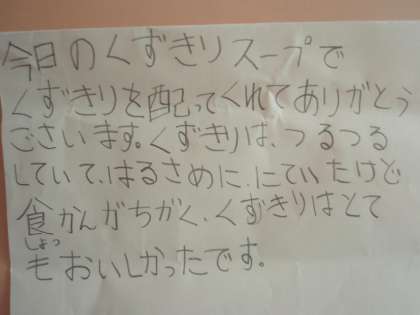 今日のくずきりスープで
くずきりを配ってくれてありがとう
ございます。くずきりは、つるつる
していて、はるさめに、にていたけど
食かんがちがく、くずきりはとて
しょっ
もおいしかったです。